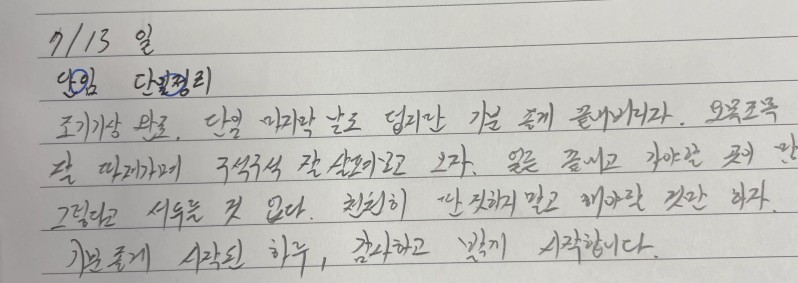 7/13 일
단임 단월정리
조기기상 완료. 단일 마지막 날로 덥지만 기분 좋게 끝내버리자. 오목조목
잘 따져가며 구석구석 잘 살펴라고 오자. 얼른 끝내고 가야할 곳이 만
그렇다고 서두를 것 없다. 천천히 딴 짓하지 말고 해야할 것만 하자.
기분 좋게 시작된 하루, 감사하고 밝게 시작합니다.